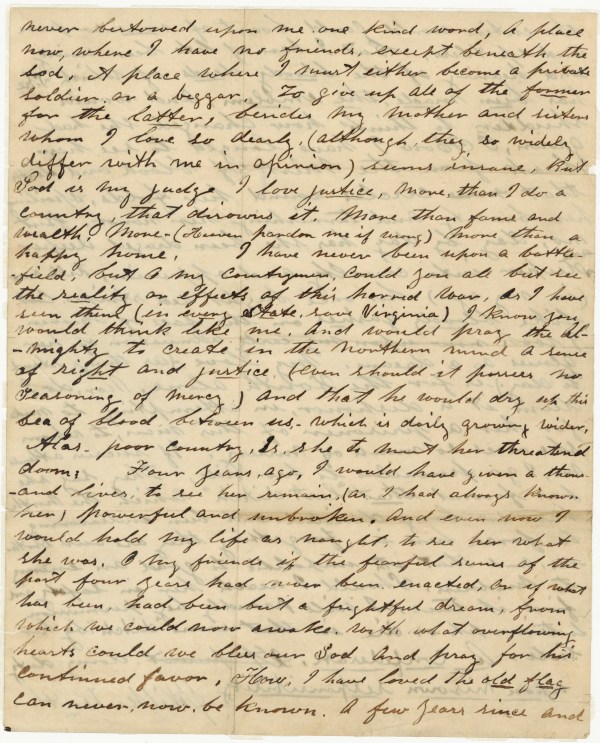 never bestowed upon me one kind word, A place
now, where I have no friends, except beneath the
sod, A place where I must either become a private
soldier, or a beggar, To give up all of the former
for the latter, besides my mother and sisters
whom I love so dearly, (although, they so widely
differ with me in opinion) seems insane, But
God is my judge I love justice, More, than I do a
country, that disowns it. More than fame and
wealth. More-(Heaven pardon me if wrong) more than a
happy home. I have never been upon a battle-
-field, but O my countrymen, could you all but see
the reality or effects of this horred war, as I have
seen them (in every State, save Virginia) I know you
would think like me, And would pray the Al-
-mighty to create in the northern mind a sense
of right and justice (even should it possess no
seasoning of mercy,) and that he would dry up this
Sea of blood between us - which is daily growing wider,
Alas - poor country, Is she to meet her threatend
doom, Four years, ago, I would have given a thous-
-and lives, to see her remain, (as I had always known
her) powerful and unbroken. And even now I
would hold my life as naught, to see her what
she was. O my friends if the fearful scenes of the
past four years had never been enacted, or if what
has been, had been but a frightful dream, from
which we could now awake, with what overflowing
hearts could we bless our God And pray for his
continued favor, How, I have loved the old flag
can never, now, be known. A few years since and